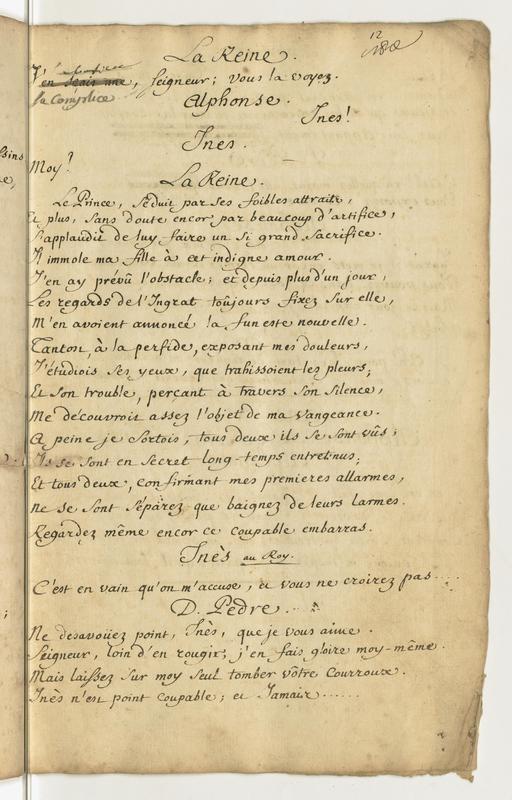 12
La Reine.
J'en sçais une, Seigneur; vous la voyez.
sa Complice
Alphonse.
Ines!
Ines.
Moy?
La Reine.
Le Prince, séduit par ses foibles attraits,
Et plus, sans doute encor par beaucoup d'artifice,
S'applaudit de luy faire un si grand Sacrifice.
Il immole ma fille à cet indigne amour.
J'en ay prévû l'obstacle; et depuis plus d'un jour,
Les regards de l'Ingrat toûjours fixez sur elle,
M'en avoient annoncé la funeste nouvelle.
Tantost, à la perfide, exposant mes douleurs,
J'étudiois ses yeux, que trahissoient les pleurs;
Et son trouble, perçant à travers son silence,
Me découvroit assez l'objet de ma vangeance.
A peine je sortois, tous deux ils se sont vûs;
Ils se sont en secret long-temps entretenus;
Et tous deux, confirmant mes premieres allarmes,
ne se sont séparez que baignez de leurs larmes.
Regardez même encor ce coupable embarras.
Inès au Roy.
C'est en vain qu'on m'accuse, et vous ne croirez pas....
D. Pedre.
Ne desavoüez point, Inès, que je vous aime.
Seigneur, loin d'en rougir; j'en fais gloire moy-même.
Mais laissez sur moy seul tomber vôtre Courroux.
Inès n'est point coupable; et Jamais......